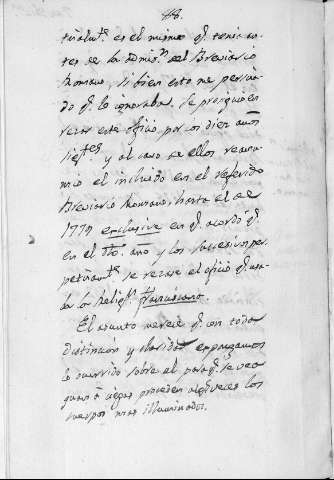 116.
es el mismo q.e tenia an-
tes de la admis.n del Breviario
Romano, si bien esto me persua-
do q.e lo ignoraban. Se prosiguió en
rezar este oficio por los diez años
sig.tes y al cabo de ellos reasu-
mió el incluido en el referido
Breviario Romano, hasta el de
1779 exclusive en q.e acordó q.e
en el dho. año y los sucesivos per-
petuam.te se rezase el oficio q.e usa-
ba la Relig.n Franciscana.
El asunto merece q.e con toda
distincion y claridad expongamos
lo ocurrido sobre el para q.e se vea
quan a ciegas proceden algunas veces los
cuerpos mas illuminados.